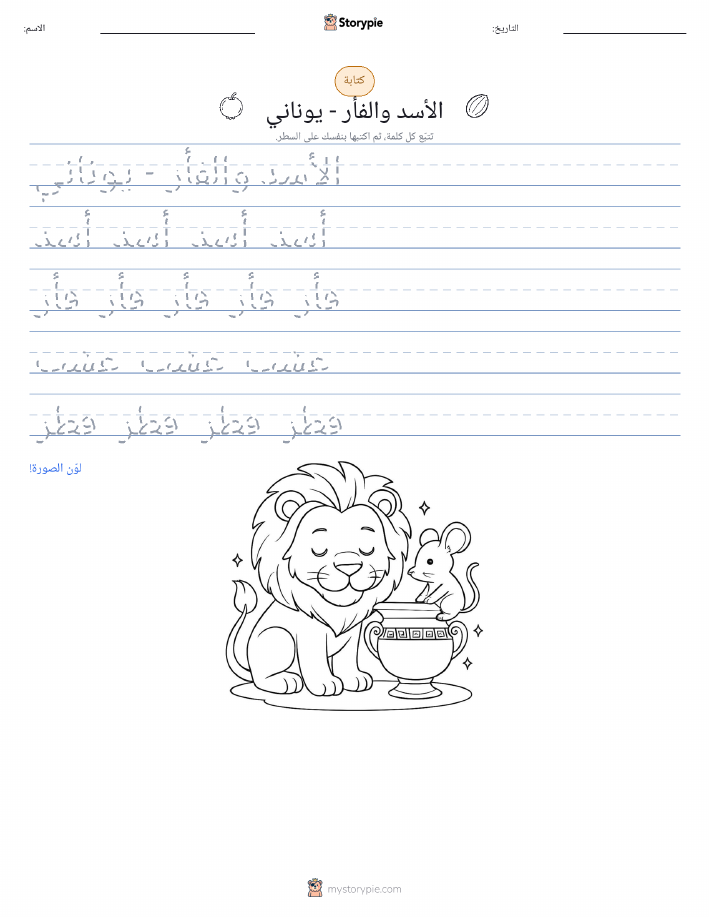 Storypie
الاسم:
التاريخ:
كتابة
الأسد والفأر - يوناني
تتبّع كل كلمة، ثم اكتبها بنفسك على السطر.
الأسد والفأر - يوناني
أسد أسد أسد أسد
فأر فأر فأر فأر فأر
عشب عشب عشب
لوّن الصورة!
mystorypie.com